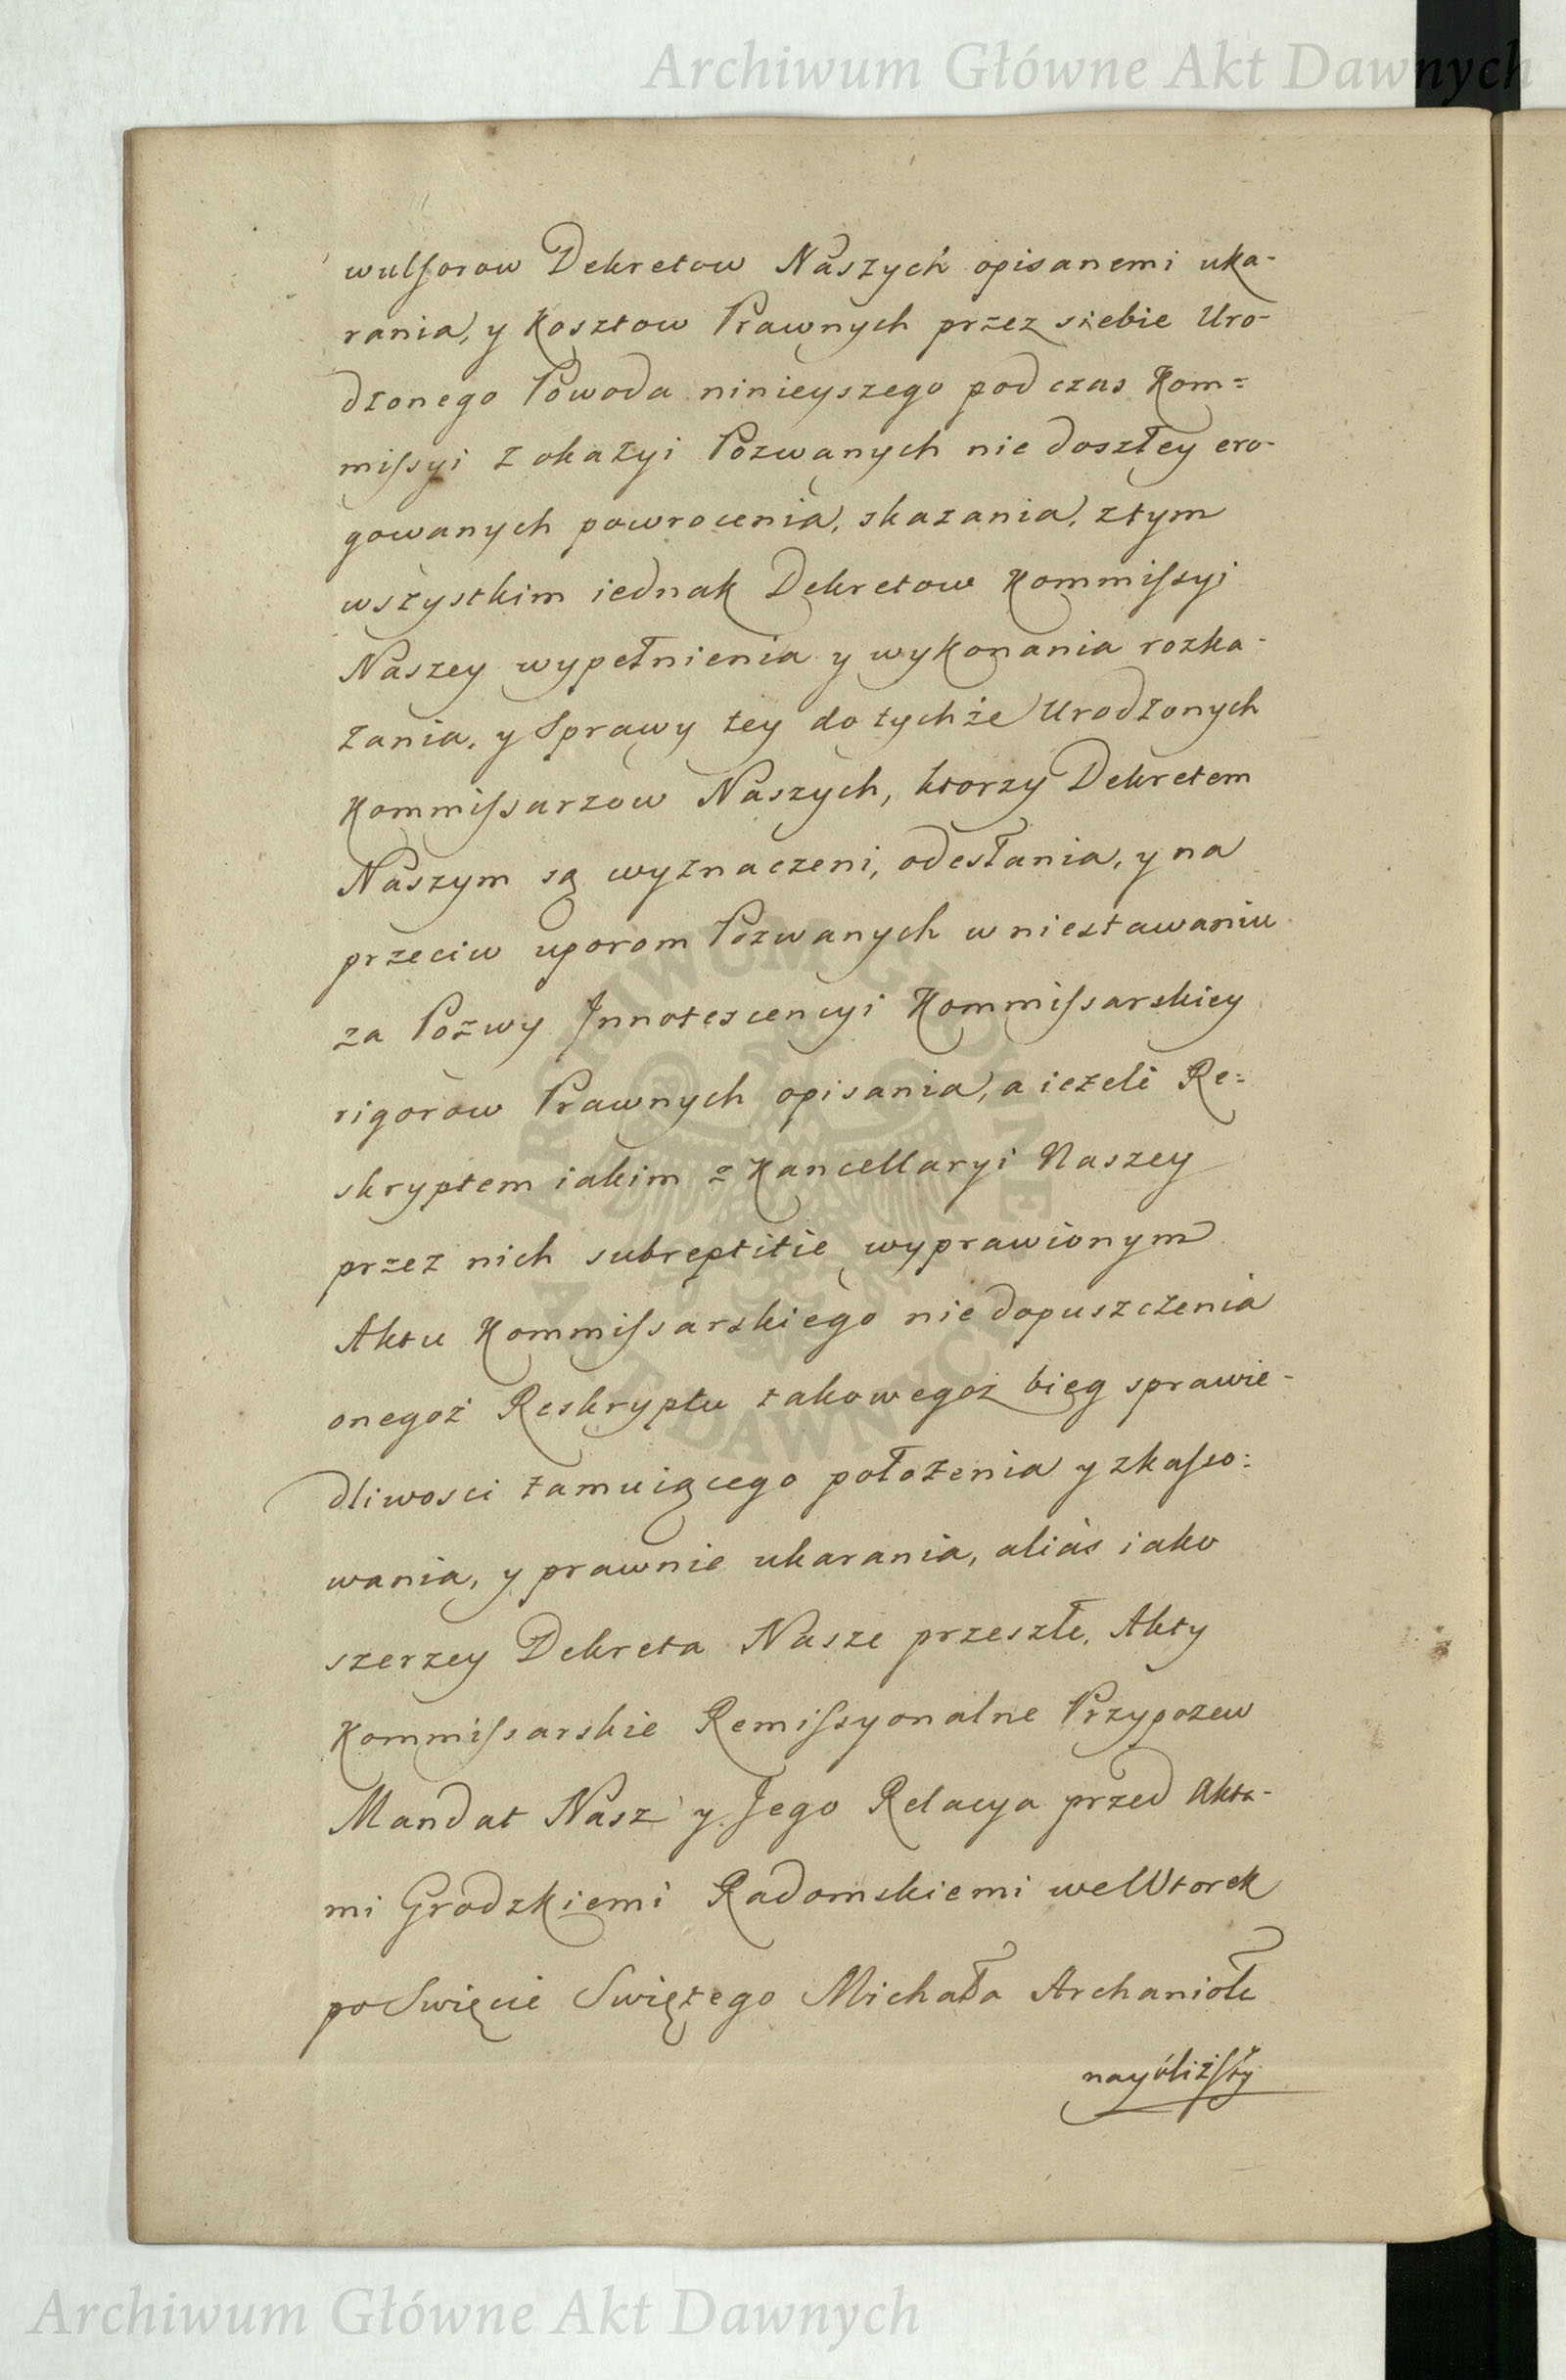 Archiwum Główne Akt Dawnych
wulsorow Dekretow Naszych opisanemi uka-
rania, y Kosztow Prawnych przez siebie Uro-
dzonego Powoda ninieyszego podczas Kom=
missyi z okazyi Pozwanych nie doszłey ero-
gowanych powrocenia, skazania, z tym
wszystkim iednak Dekretow Kommissyi
Naszey wypełnienia y wykonania rozka-
zania, y Sprawy tey do tychże Urodzonych
Kommissarzow Naszych, ktorzy Dekretem
Naszym są wyznaczeni, odesłania, y na
przeciw uporom Pozwanych w niestawaniu
za Pozwy Innotescencyi Kommissarskiey
rigorow Prawnych opisania, a ieżeli Re=
skryptem iakim z Kancellaryi Naszey
przez nich subreptitie wyprawionym
Aktu Kommissarskiego niedopuszczenia
onegoż Reskryptu takowegoż bieg sprawie-
dliwosci tamuiącego położenia y zkasso=
wania, y prawnie ukarania, alias iako
szerzey Dekreta Nasze przeszłe, Akty
Kommissarskie Remissyonalne Przypozew
Mandat Nasz y Jego Relacya przed Akta-
mi Grodzkiemi Radomskiemi we Wtorek
po Swięcie Swiętego Michała Archanioła
naybliższy
ARCHIWUM GŁÓWNE AKT DAWNYCH
Archiwum Główne Akt Dawnych